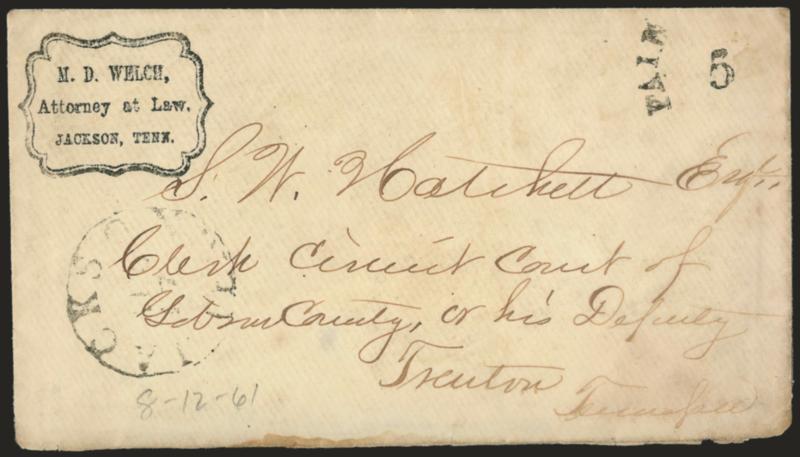 M. D. WELCH,
Attorney at Law.
JACKSON, TENN.
PAID 5
S. W. Hatchett Esqr.
Clerk Circuit Court of
Gibson County, or his Deputy
Trenton
Tennessee
JACKSON
8-12-61